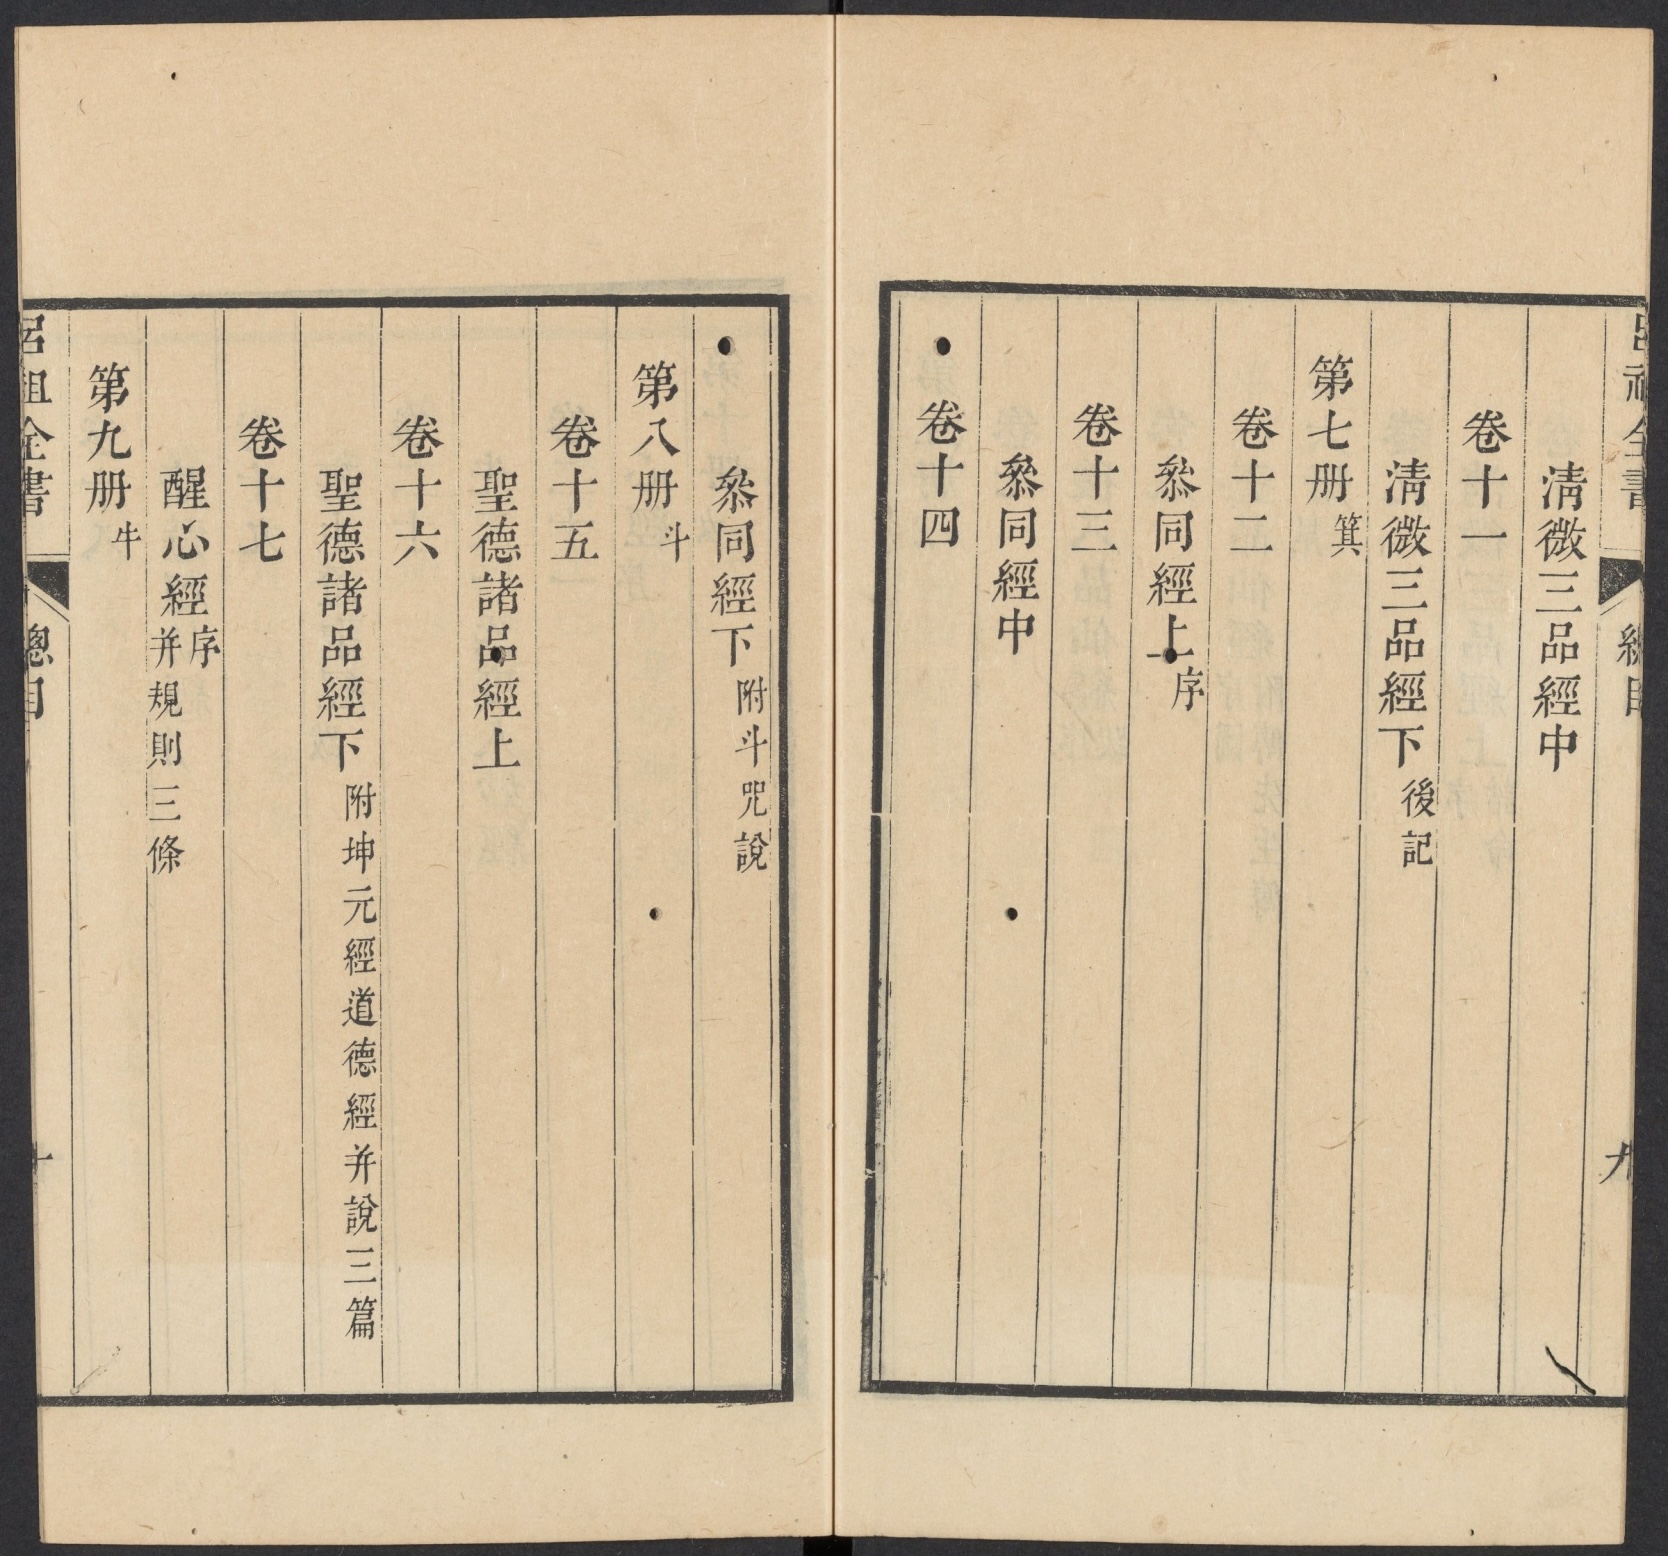 清微三品經中
卷十一
清微三品經下 後記
第七册 箕
卷十二
叅同經上 序
卷十三
叅同經中
卷十四
呂祖全書 總目 九
叅同經下 附斗咒說
第八册 斗
卷十五
聖德諸品經上
卷十六
聖德諸品經下 附坤元經道德經并說三篇
卷十七
醒心經 序 并規則三條
第九册 牛
呂祖全書 總目 十